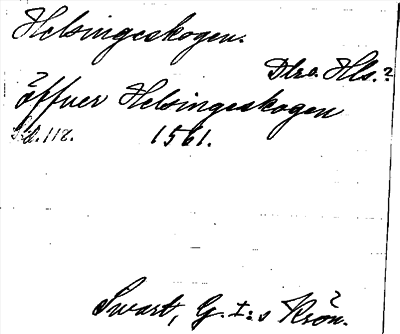 Helsingeskogen.
Dlra. Hls.?
öffuer Helsingeskogen
Sid. 112. 1561.
Swart, G. I:s Krön.